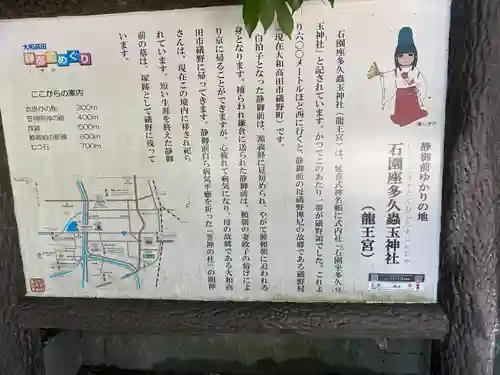 静御前ゆかりの地
石園座多久蟲玉神社
(龍王宮)
石園座多久蟲玉神社(龍王宮)は、延喜式神名帳に式内社「石園坐多久豆
玉神社」と記されています。かつてこのあたり一帯が磯野領でした。これよ
り六〇〇メートルほど西に行くと、静御前の母磯野禅尼の故郷である磯野村
(現在大和高田市磯野町)です。
白拍子となった静御前は、源義経に見初められ、やがて源頼朝に追われる
身となります。捕らわれ鎌倉に送られた静御前は、頼朝の妻政子の情けによ
り京に帰ることができますが、心疲れて病気になり、母の故郷である大和高
田市磯野に帰ってきます。静御前自ら病気平癒を祈った「笠神の杜」の明神
さんは、現在この境内に移され祀ら
れています。短い生涯を終えた静御
前の墓は、塚跡として磯野に残って
います。
大和高田
静御前めぐり
ここからの案内
衣掛けの松 300m
笠神明神の碑 400m
塚跡 500m
静御前の記念碑 600m
七つ石 700m